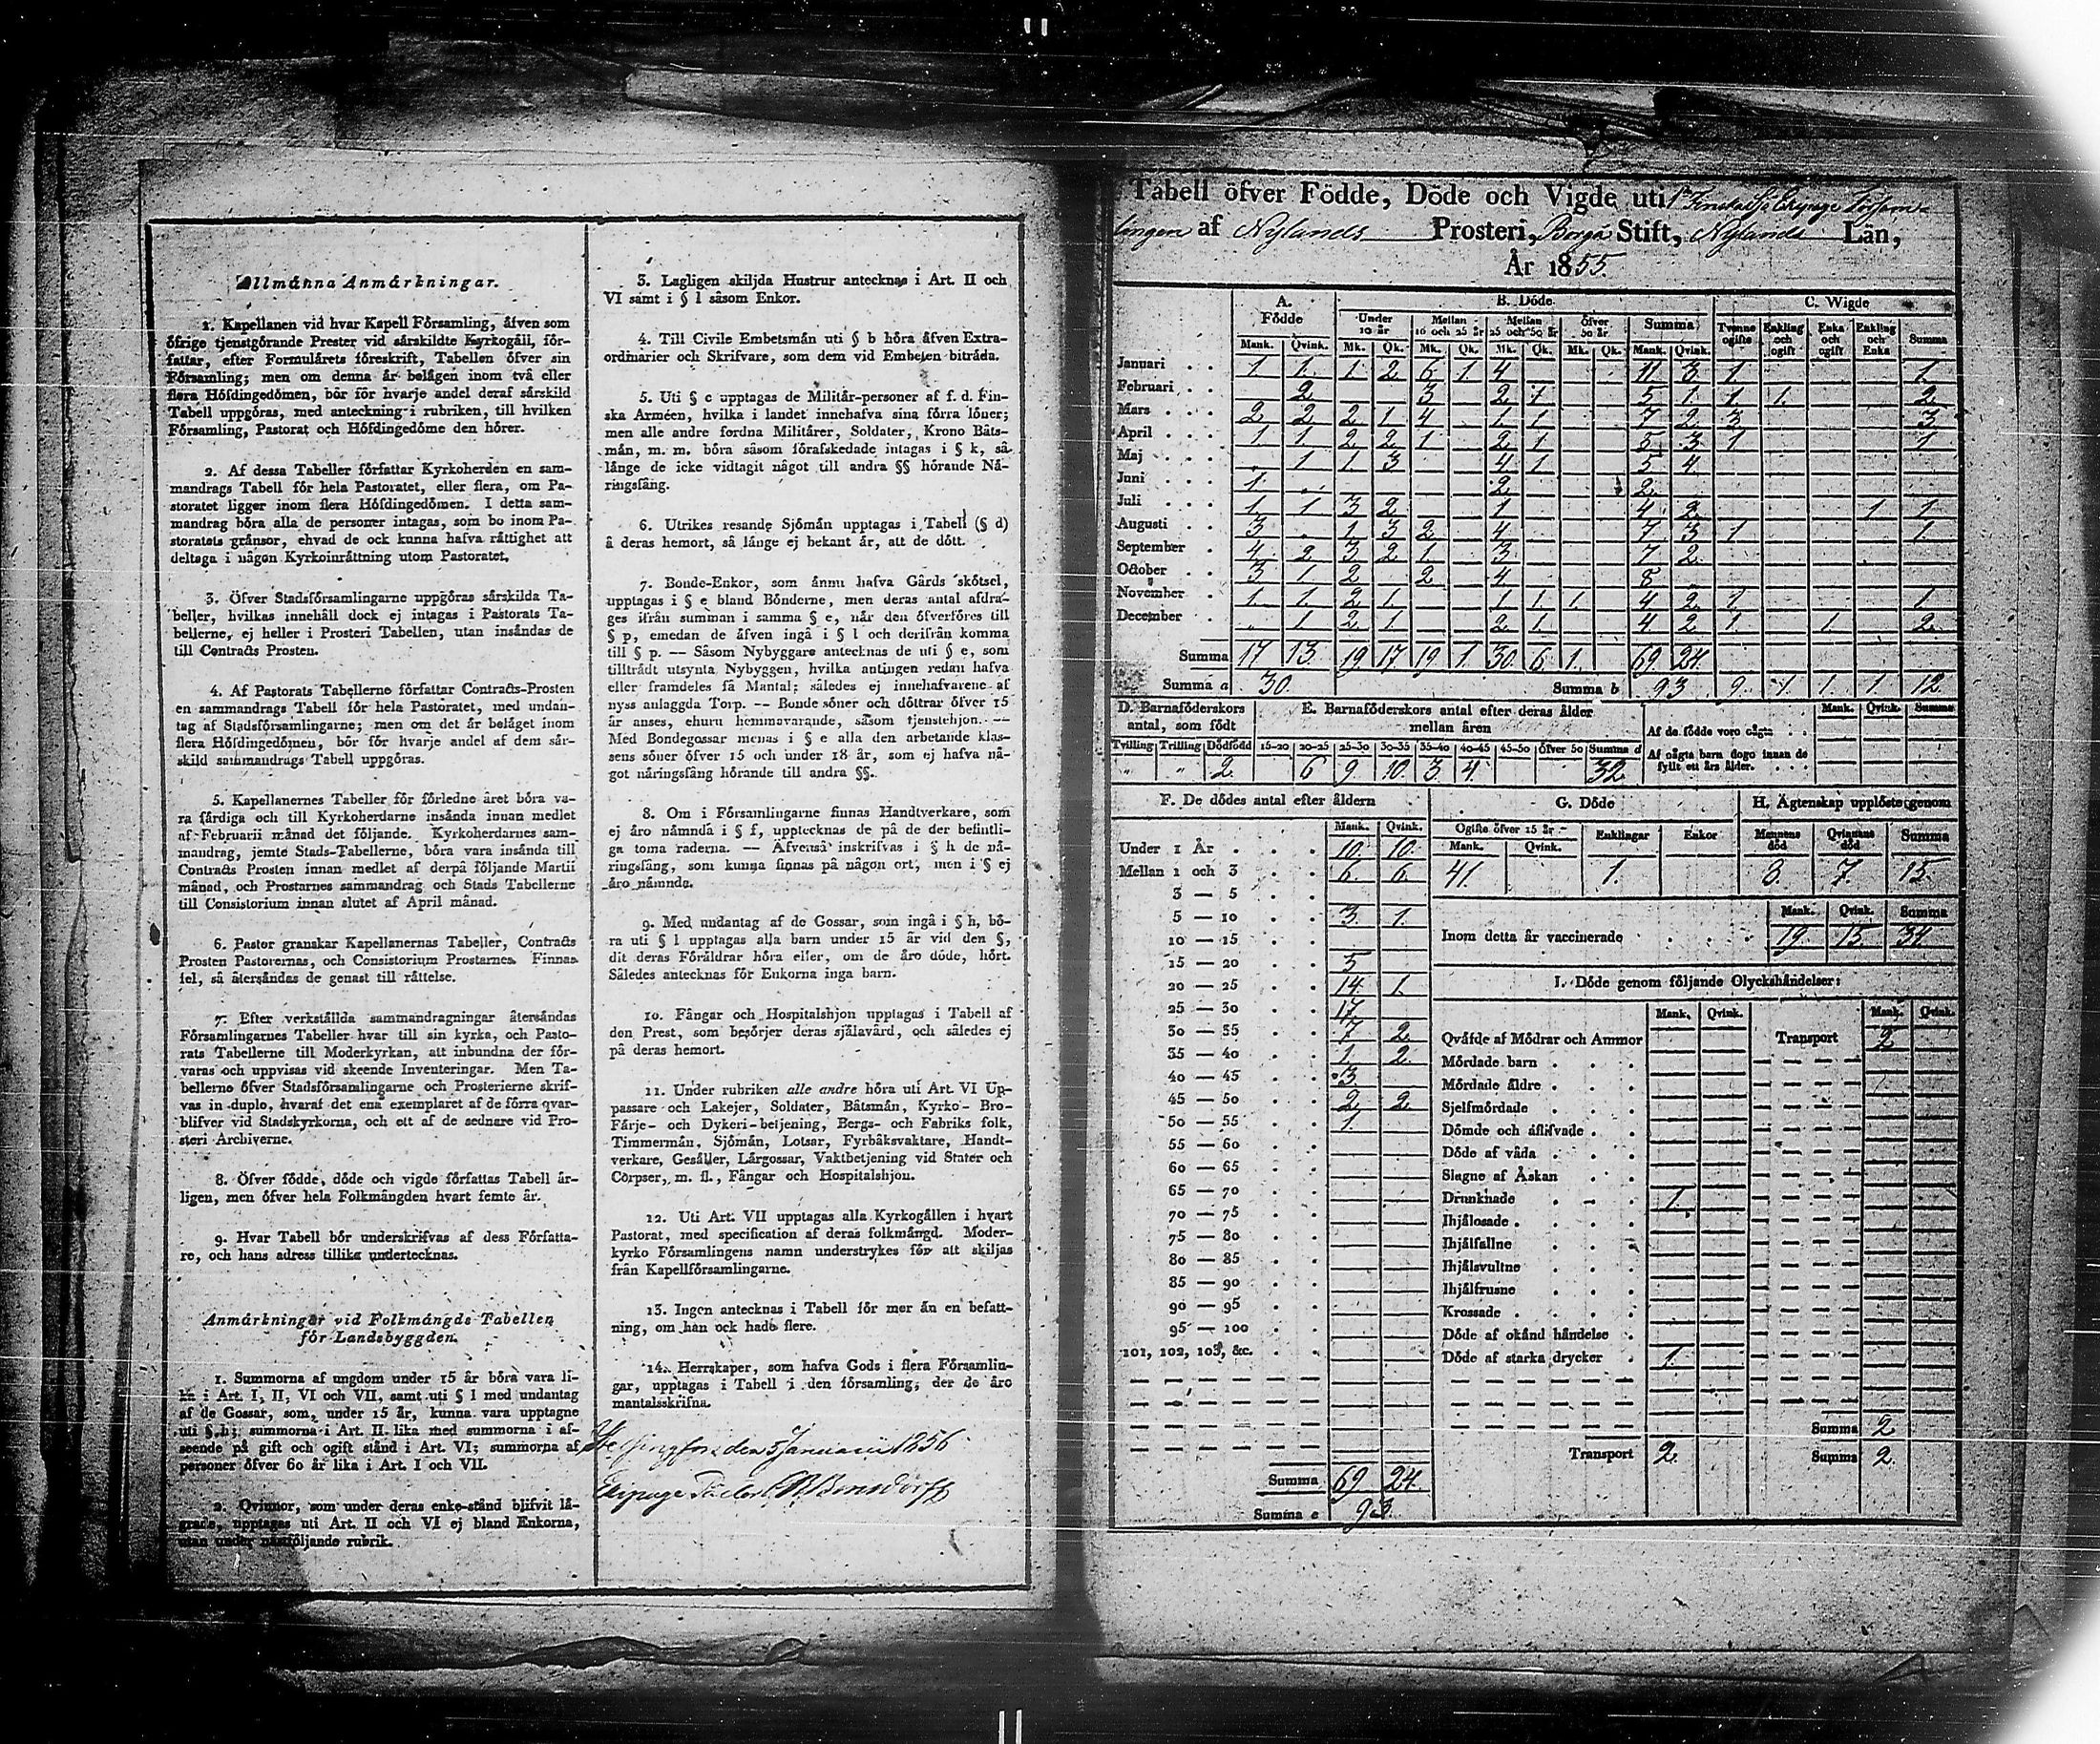 Allmänna Anmärkningar.
1. Kapellanen vid hvar Kapell Församling, äfven som
öfrige tjenstgörande Prester vid särskildte Kyrkogäll, för-
fattar, efter Formulärets föreskrift, Tabellen öfver sin
Församling; men om denna är belägen inom två eller
flera Höfdingedömen, bör för hvarje andel deraf särskild
Tabell uppgöras, med anteckning i rubriken, till hvilken
Församling, Pastorat och Höfdingedöme den hörer.
2. Af dessa Tabeller författar Kyrkoherden en sam-
mandrags Tabell för hela Pastoratet, eller flera, om Pa-
storatet ligger inom flera Höfdingedömen. I detta sam-
mandrag böra alla de personer intagas, som bo inom Pa-
storatets gränsor, ehvad de ock kunna hafva rättighet att
deltaga i någon Kyrkoinrättning utom Pastoratet.
3. Öfver Stadsförsamlingarne uppgöras särskilda Ta-
beller, hvilkas innehåll dock ej intages i Pastorats Ta-
bellerne, ej heller i Prosteri Tabellen, utan insändas de
till Contracts Prosten.
4. Af Pastorats Tabellerne författar Contracts-Prosten
en sammandrags Tabell för hela Pastoratet, med undan-
tag af Stadsförsamlingarne; men om det är beläget inom
flera Höfdingedömen, bör för hvarje andel af dem sär-
skild sammandrags Tabell uppgöras.
5. Kapellanernes Tabeller för förledne året böra va-
ra färdiga och till Kyrkoherdarne insända innan medlet
af Februarii månad det följande. Kyrkoherdarnes sam-
mandrag, jemte Stads-Tabellerne, böra vara insända till
Contracts Prosten innan medlet af derpå följande Martii
månad, och Prostarnes sammandrag och Stads Tabellerne
till Consistorium innan slutet af April månad.
6. Pastor granskar Kapellanernas Tabeller, Contracts
Prosten Pastorernas, och Consistorium Prostarnes. Finnas
fel, så återsändas de genast till rättelse.
7. Efter verkställda sammandragningar återsändas
Församlingarnes Tabeller hvar till sin kyrka, och Pasto-
rats Tabellerne till Moderkyrkan, att inbundna der för-
varas och uppvisas vid skeende Inventeringar. Men Ta-
bellerne öfver Stadsförsamlingarne och Prosterierne skrif-
vas in duplo, hvaraf det ena exemplaret af de förra qvar-
blifver vid Stadskyrkorna, och ett af de sednare vid Pro-
steri Archiverne.
8. Öfver födde, döde och vigde författas Tabell år-
ligen, men öfver hela Folkmängden hvart femte år.
9. Hvar Tabell bör underskrifvas af dess Författa-
re, och hans adress tillika undertecknas.
Anmärkningar vid Folkmängds Tabellen
för Landsbyggden.
1. Summorna af ungdom under 15 år böra vara li-
ka i Art. I, II, VI och VII, samt uti § 1 med undantag
af de Gossar, som, under 15 år, kunna vara upptagne
uti § h; summorna i Art. II lika med summorna i af-
seende på gift och ogift stånd i Art. VI; summorna af
personer öfver 60 år lika i Art. I och VII.
2. Qvinnor, som under deras enke-stånd blifvit lä-
grade, upptagas uti Art. II och VI ej bland Enkorna,
utan under nästföljande rubrik.
3. Lagligen skiljda Hustrur antecknas i Art. II och
VI samt i § l såsom Enkor.
4. Till Civile Embetsmän uti § b höra äfven Extra-
ordinarier och Skrifvare, som dem vid Embeten biträda.
5. Uti § c upptagas de Militär-personer af f. d. Fin-
ska Arméen, hvilka i landet innehafva sina förra löner;
men alle andre fordna Militärer, Soldater, Krono Båts-
män, m. m. böra såsom förafskedade intagas i § k, så
länge de icke vidtagit något till andra §§ hörande Nä-
ringsfång.
6. Utrikes resande Sjömän upptagas i Tabell (§ d)
å deras hemort, så länge ej bekant är, att de dött.
7. Bonde-Enkor, som ännu hafva Gårds skötsel,
upptagas i § e bland Bönderne, men deras antal afdra-
ges ifrån summan i samma § e, når den öfverföres till
§ p, emedan de äfven ingå i § l och derifrån komma
till § p. — Såsom Nybyggare antecknas de uti § e, som
tillträdt utsynta Nybyggen, hvilka antingen redan hafva
eller framdeles få Mantal; således ej innehafvarene af
nyss anlaggda Torp. — Bonde söner och döttrar öfver 15
år anses, ehuru hemmavarande, såsom tjenstehjon. —
Med Bondegossar menas i § e alla den arbetande klas-
sens söner öfver 15 och under 18 år, som ej hafva nå-
got näringsfång hörande till andra §§.
8. Om i Församlingarne finnas Handtverkare, som
ej äro nämnda i § f, upptecknas de på de der befintli-
ga toma raderna. — Äfvenså inskrifvas i § h de nä-
ringsfång, som kunna finnas på någon ort, men i § ej
äro nämnda.
9. Med undantag af de Gossar, som ingå i § h, bö-
ra uti § l upptagas alla barn under 15 år vid den §,
dit deras Föräldrar höra eller, om de äro döde, hört.
Således antecknas för Enkorna inga barn.
10. Fångar och Hospitalshjon upptagas i Tabell af
den Prest, som besörjer deras själavård, och således ej
på deras hemort.
11. Under rubriken alle andre höra uti Art. VI Up-
passare och Lakejer, Soldater, Båtsmän, Kyrko- Bro-
Färje- och Dykeri-betjening, Bergs- och Fabriks folk,
Timmermän, Sjömän, Lotsar, Fyrbåksvaktare, Handt-
verkare, Gesäller, Lärgossar, Vaktbetjening vid Stater och
Corpser, m. fl., Fångar och Hospitalshjon.
12. Uti Art. VII upptagas alla Kyrkogällen i hvart
Pastorat, med specification af deras folkmängd. Moder-
kyrko Församlingens namn understrykes för att skiljas
från Kapellförsamlingarne.
13. Ingen antecknas i Tabell för mer än en befatt-
ning, om han ock hade flere.
14. Herrskaper, som hafva Gods i flera Församlin-
gar, upptagas i Tabell i den församling, der de äro
mantalsskrifna.
Helsingfors den 5 Januarii 1856
Tabell öfver Födde, Döde och Vigde uti Församl-
lingen af Nylands Prosteri, Borgå Stift, Nylands Län,
År 1855.
A. Födde B. Döde C. Wigde
Under 10 år Mellan 10 och 25 år Mellan 25 och 50 år Öfver 50 år Summa Tvenne ogifte Enkling och ogift Enka och ogift Enkling och Enka Summa
Mank. Qvink. Mk. Qk. Mk. Qk. Mk. Qk. Mk. Qk. Mank. Qvink.
Januari 1 1 1 2 6 1 4 11 3 1 1
Februari 2 3 2 1 5 1 1 1 2
Mars 2 2 2 1 4 1 1 7 2 3 3
April 1 1 2 2 1 2 1 5 3 1 1
Maj 1 1 3 4 1 5 4
Juni 1 2 2
Juli 1 1 3 2 1 4 2 1 1
Augusti 3 1 3 2 4 7 3 1 1
September 4 2 3 2 1 3 7 2
October 3 1 2 2 4 8
November 1 1 2 1 1 1 1 4 2 1 1
December 1 2 1 2 1 4 2 1 1 2
Summa 17 13 19 17 19 1 30 6 1 69 24
Summa a 30 Summa b 93 9 1 1 1 12
D. Barnaföderskors antal, som födt
Tvilling Trilling Dödfödd
" " 2
E. Barnaföderskors antal efter deras ålder mellan åren
15-20 20-25 25-30 30-35 35-40 40-45 45-50 öfver 50 Summa d
6 9 10 3 4 32
Mank. Qvink. Summa
Af de födde voro oägta
Af oägta barn dogo innan de
fyllt ett års ålder.
F. De dödes antal efter åldern
Mank. Qvink.
Under 1 År 10 10
Mellan 1 och 3 6 6
3 — 5
5 — 10 3 1
10 — 15
15 — 20 5
20 — 25 14 1
25 — 30 17
30 — 35 7 2
35 — 40 1 2
40 — 45 3
45 — 50 2 2
50 — 55 1
55 — 60
60 — 65
65 — 70
70 — 75
75 — 80
80 — 85
85 — 90
90 — 95
95 — 100
101, 102, 103, &c.
Summa 69 24
Summa e 93
G. Döde
Ogifte öfver 15 år Enklingar Enkor
Mank. Qvink.
41 1
H. Ägtenskap upplöste genom
Mannens död Qvinnans död Summa
8 7 15
Mank. Qvink. Summa
Inom detta år vaccinerade 19 15 34
I. Döde genom följande Olyckshändelser:
Mank. Qvink. Mank. Qvink.
Qväfde af Mödrar och Ammor Transport 2
Mördade barn
Mördade äldre
Sjelfmördade
Dömde och aflifvade
Döde af våda
Slagne af Åskan
Drunknade 1
Ihjälosade
Ihjälfallne
Ihjälsvultne
Ihjälfrusne
Krossade
Döde af okänd händelse
Döde af starka drycker 1
Summa 2
Transport 2 Summa 2